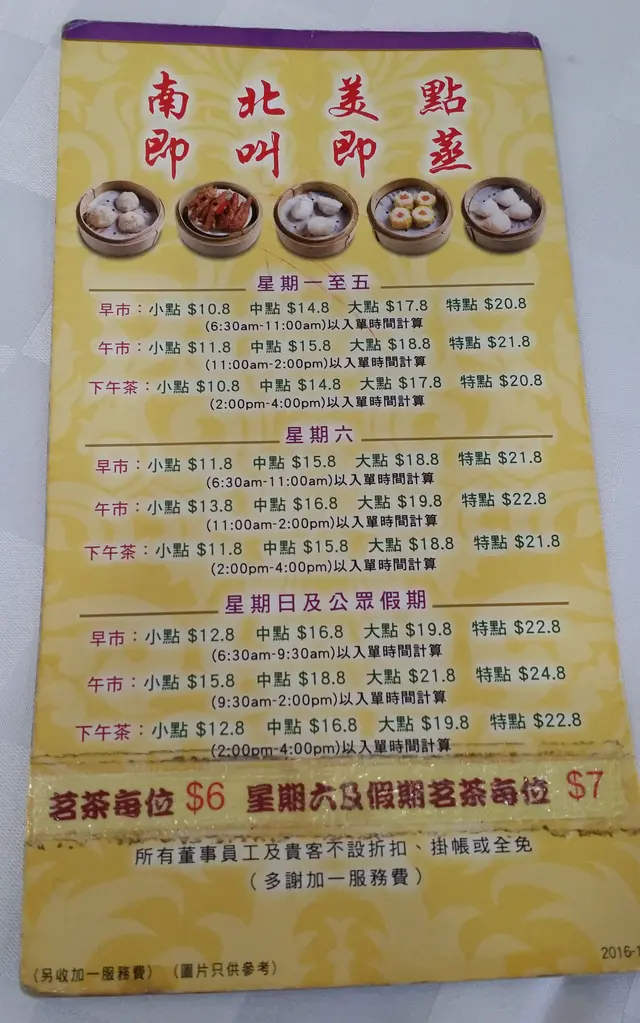 南北美點
即叫即蒸
星期一至五
早市：小點 $10.8 中點 $14.8 大點 $17.8 特點 $20.8
(6:30am-11:00am)以入單時間計算
午市：小點 $11.8 中點 $15.8 大點 $18.8 特點 $21.8
(11:00am-2:00pm)以入單時間計算
下午茶：小點 $10.8 中點 $14.8 大點 $17.8 特點 $20.8
(2:00pm-4:00pm)以入單時間計算
星期六
早市：小點 $11.8 中點 $15.8 大點 $18.8 特點 $21.8
(6:30am-11:00am)以入單時間計算
午市：小點 $13.8 中點 $16.8 大點 $19.8 特點 $22.8
(11:00am-2:00pm)以入單時間計算
下午茶：小點 $11.8 中點 $15.8 大點 $18.8 特點 $21.8
(2:00pm-4:00pm)以入單時間計算
星期日及公眾假期
早市：小點 $12.8 中點 $16.8 大點 $19.8 特點 $22.8
(6:30am-9:30am)以入單時間計算
午市：小點 $15.8 中點 $18.8 大點 $21.8 特點 $24.8
(9:30am-2:00pm)以入單時間計算
下午茶：小點 $12.8 中點 $16.8 大點 $19.8 特點 $22.8
(2:00pm-4:00pm)以入單時間計算
茗茶每位 $6 星期六及假期茗茶每位 $7
所有董事員工及貴客不設折扣、掛帳或全免
（多謝加一服務費）
（另收加一服務費）（圖片只供參考）
2016-1